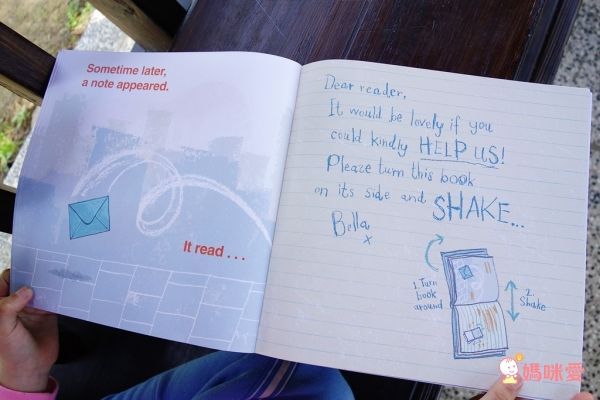 Sometime later,
a note appeared.
It read . . .
Dear reader,
It would be lovely if you
could kindly HELP US!
Please turn this book
on its side and SHAKE...
Bella
x
1. Turn
book
around
2.
Shake
媽咪愛